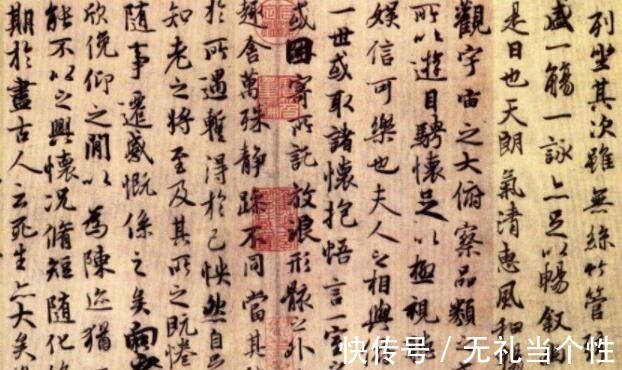 列坐其次雖無絲竹管
盛一觴一詠亦足以暢叙
是日也天朗氣清惠風和
觀宇宙之大俯察品類之
所以遊目騁懷足以極視
娛信可樂也夫人之相與
一世或取諸懷抱悟言一室
或因寄所託放浪形骸之外
趣舍萬殊靜躁不同當其
於所遇暫得於己怏然自足
知老之將至及其所之既惓
隨事遷感慨係之矣向
欣俛仰之閒以為陳迹猶
能不以之興懷況脩短隨化
期於盡古人云死生亦大矣
快传号 / 无礼当个性